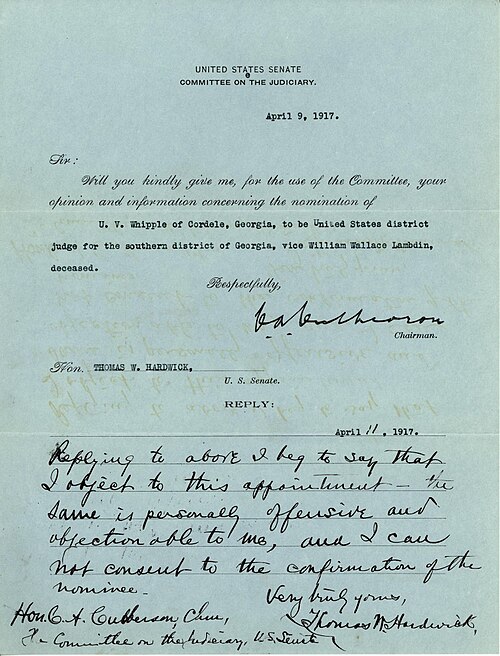 UNITED STATES SENATE
COMMITTEE ON THE JUDICIARY.
April 9, 1917.
Sir:
Will you kindly give me, for the use of the Committee, your
opinion and information concerning the nomination of
U. V. Whipple of Cordele, Georgia, to be United States district
judge for the southern district of Georgia, vice William Wallace Lambdin,
deceased.
Respectfully,
C A Culberson
Chairman.
Hon. THOMAS W. HARDWICK,
U. S. Senate.
REPLY:
April 11, 1917.
Replying to above I beg to say that
I object to this appointment – the
same is personally offensive and
objectionable to me, and I can
not consent to the confirmation of the
nominee.
Very truly yours,
Hon. C. A. Culberson, Chm,
Thomas W. Hardwick,
Committee on the Judiciary, U.S. Senate